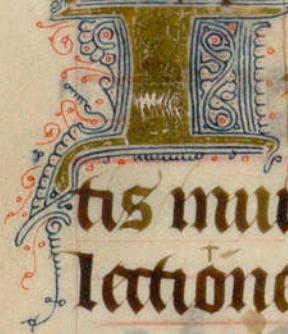 I
tis mun
lectione